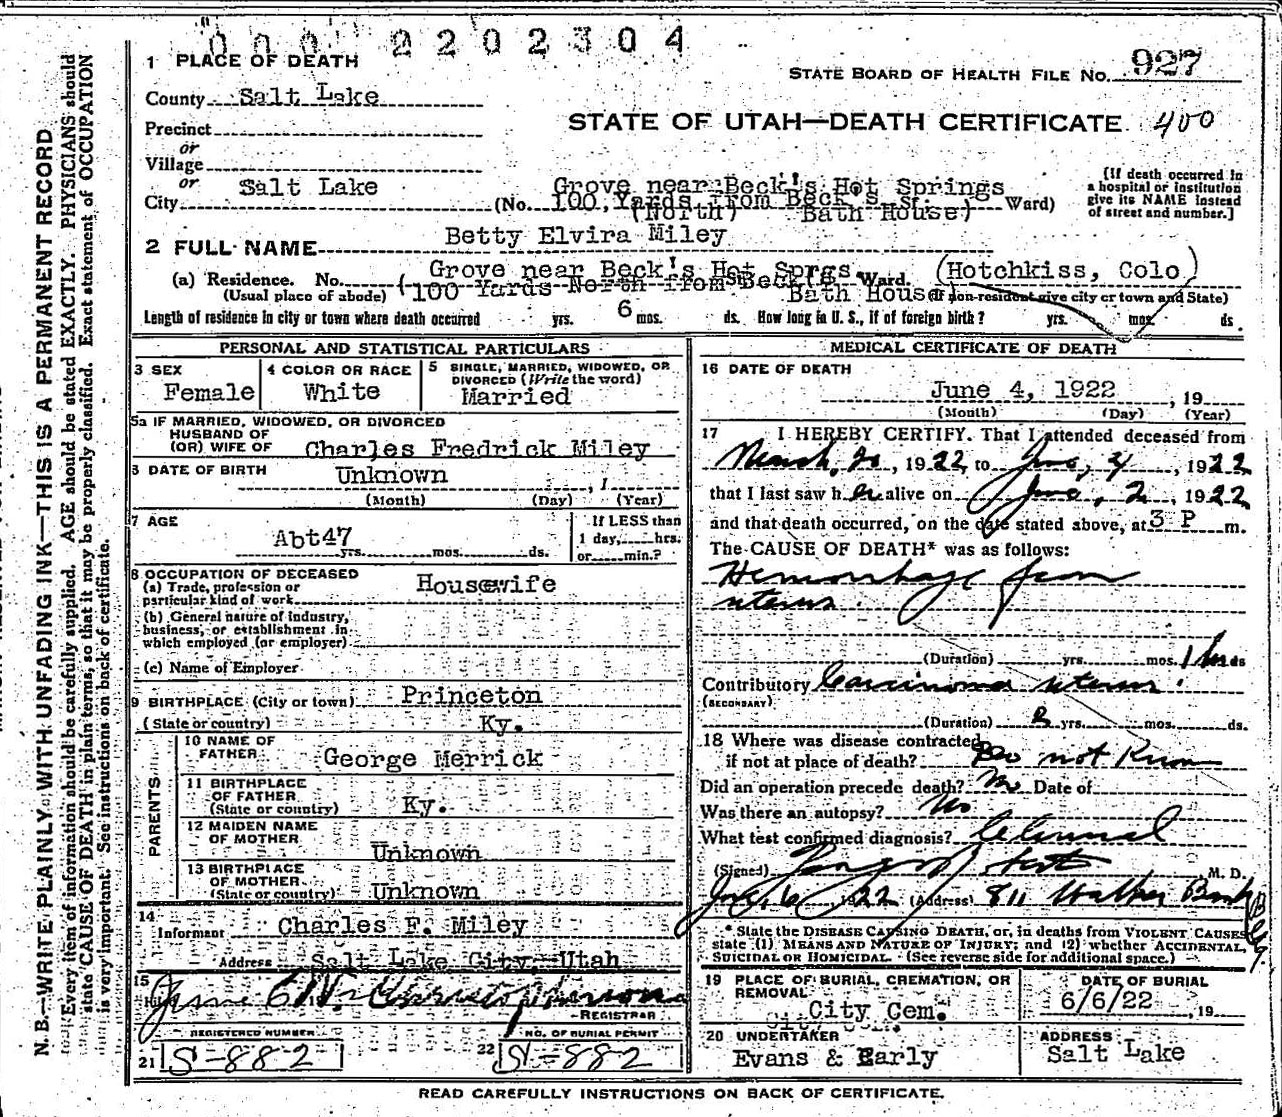 000 2202304
1 PLACE OF DEATH
STATE BOARD OF HEALTH FILE No. 927
County Salt Lake
STATE OF UTAH—DEATH CERTIFICATE 400
Precinct
or
Village
or
City Salt Lake (No. Grove near Beck's Hot Springs St. Ward)
100 Yards from Beck's
(North) Bath House)
[If death occurred in
a hospital or institution
give its NAME instead
of street and number.]
2 FULL NAME Betty Elvira Miley
(a) Residence. No. Grove near Beck's Hot Sprgs Ward. (Hotchkiss, Colo)
(Usual place of abode) (100 Yards North from Beck's Bath House) (If non-resident give city or town and State)
Length of residence in city or town where death occurred yrs. 6 mos. ds. How long in U. S., if of foreign birth? yrs. mos. ds.
PERSONAL AND STATISTICAL PARTICULARS
3 SEX
Female
4 COLOR OR RACE
White
5 SINGLE, MARRIED, WIDOWED, OR
DIVORCED (Write the word)
Married
5a IF MARRIED, WIDOWED, OR DIVORCED
HUSBAND OF
(OR) WIFE OF Charles Fredrick Miley
6 DATE OF BIRTH Unknown , 1
(Month) (Day) (Year)
7 AGE
Abt47 yrs. mos. ds.
If LESS than
1 day, hrs.
or min.?
8 OCCUPATION OF DECEASED
(a) Trade, profession or
particular kind of work Housewife
(b) General nature of industry,
business, or establishment in
which employed (or employer)
(c) Name of Employer
9 BIRTHPLACE (City or town) Princeton
(State or country) Ky.
PARENTS
10 NAME OF
FATHER George Merrick
11 BIRTHPLACE
OF FATHER
(State or country) Ky.
12 MAIDEN NAME
OF MOTHER Unknown
13 BIRTHPLACE
OF MOTHER
(State or country) Unknown
14
Informant Charles F. Miley
Address Salt Lake City, Utah
15
REGISTRAR
REGISTERED NUMBER
21 S-882
NO. OF BURIAL PERMIT
22 S-882
MEDICAL CERTIFICATE OF DEATH
16 DATE OF DEATH
June 4, 1922 , 19
(Month) (Day) (Year)
17 I HEREBY CERTIFY. That I attended deceased from
March, 20, 1922 to June, 4, 1922
that I last saw her alive on June, 2, 1922
and that death occurred, on the date stated above, at 3 P m.
The CAUSE OF DEATH* was as follows:
Hemorrhage from
uterus.
(Duration) yrs. mos. 1 hr ds
Contributory Carcinoma uterus.
(SECONDARY)
(Duration) 2 yrs. mos. ds.
18 Where was disease contracted
if not at place of death? Do not Know
Did an operation precede death? No Date of
Was there an autopsy? No
What test confirmed diagnosis? Clinical
(Signed) M. D.
June, 6 1922 (Address) 811 Walker Bank Bldg.
* State the DISEASE CAUSING DEATH, or, in deaths from VIOLENT CAUSES
state (1) MEANS AND NATURE OF INJURY; and (2) whether ACCIDENTAL,
SUICIDAL OR HOMICIDAL. (See reverse side for additional space.)
19 PLACE OF BURIAL, CREMATION, OR
REMOVAL
City Cem.
DATE OF BURIAL
6/6/22 , 19
20 UNDERTAKER
Evans & Early
ADDRESS
Salt Lake
READ CAREFULLY INSTRUCTIONS ON BACK OF CERTIFICATE.
N. B.—WRITE PLAINLY WITH UNFADING INK—THIS IS A PERMANENT RECORD
Every item of information should be carefully supplied. AGE should be stated EXACTLY. PHYSICIANS should
state CAUSE OF DEATH in plain terms, so that it may be properly classified. Exact statement of OCCUPATION
is very important. See instructions on back of certificate.